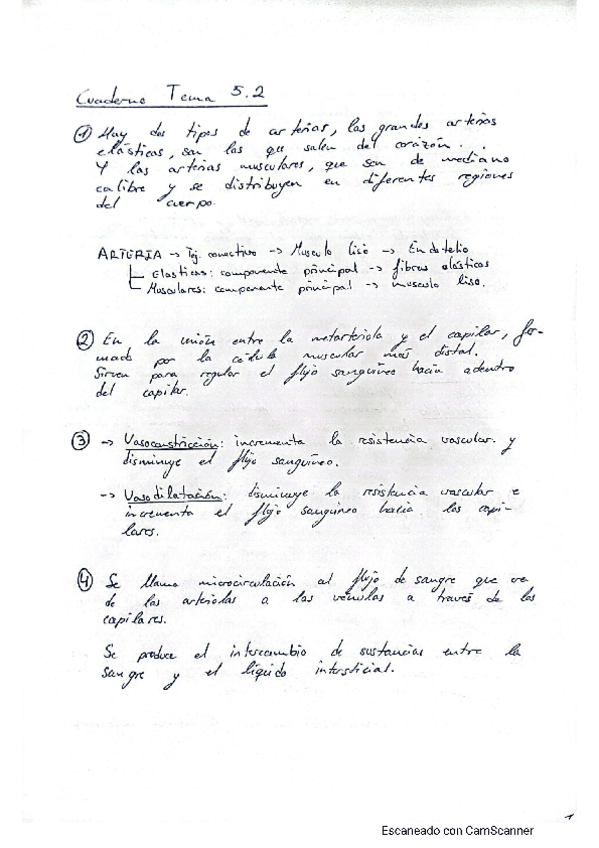 Cuaderno Tema 5.2
① Hay dos tipos de arterias, las grandes arterias
elásticas, son las que salen del corazón.
Y las arterias musculares, que son de mediano
calibre y se distribuyen en diferentes regiones
del cuerpo.
ARTERIA → Tej. conectivo → Musculo liso → Endotelio
Elasticas: componente principal → fibras elásticas
Musculares: componente principal → musculo liso.
② En la unión entre la metarteriola y el capilar, for-
mado por la célula muscular mas distal.
Sirven para regular el flujo sanguíneo hacia adentro
del capilar.
③ → Vasoconstricción: incrementa la resistencia vascular y
disminuye el flujo sanguíneo.
→ Vasodilatación: disminuye la resistencia vascular e
incrementa el flujo sanguíneo hacia los capi-
lares.
④ Se llama microcirculación al flujo de sangre que va
de las arteriolas a las vénulas a través de los
capilares.
Se produce el intercambio de sustancias entre la
sangre y el líquido intersticial.
1
Escaneado con CamScanner